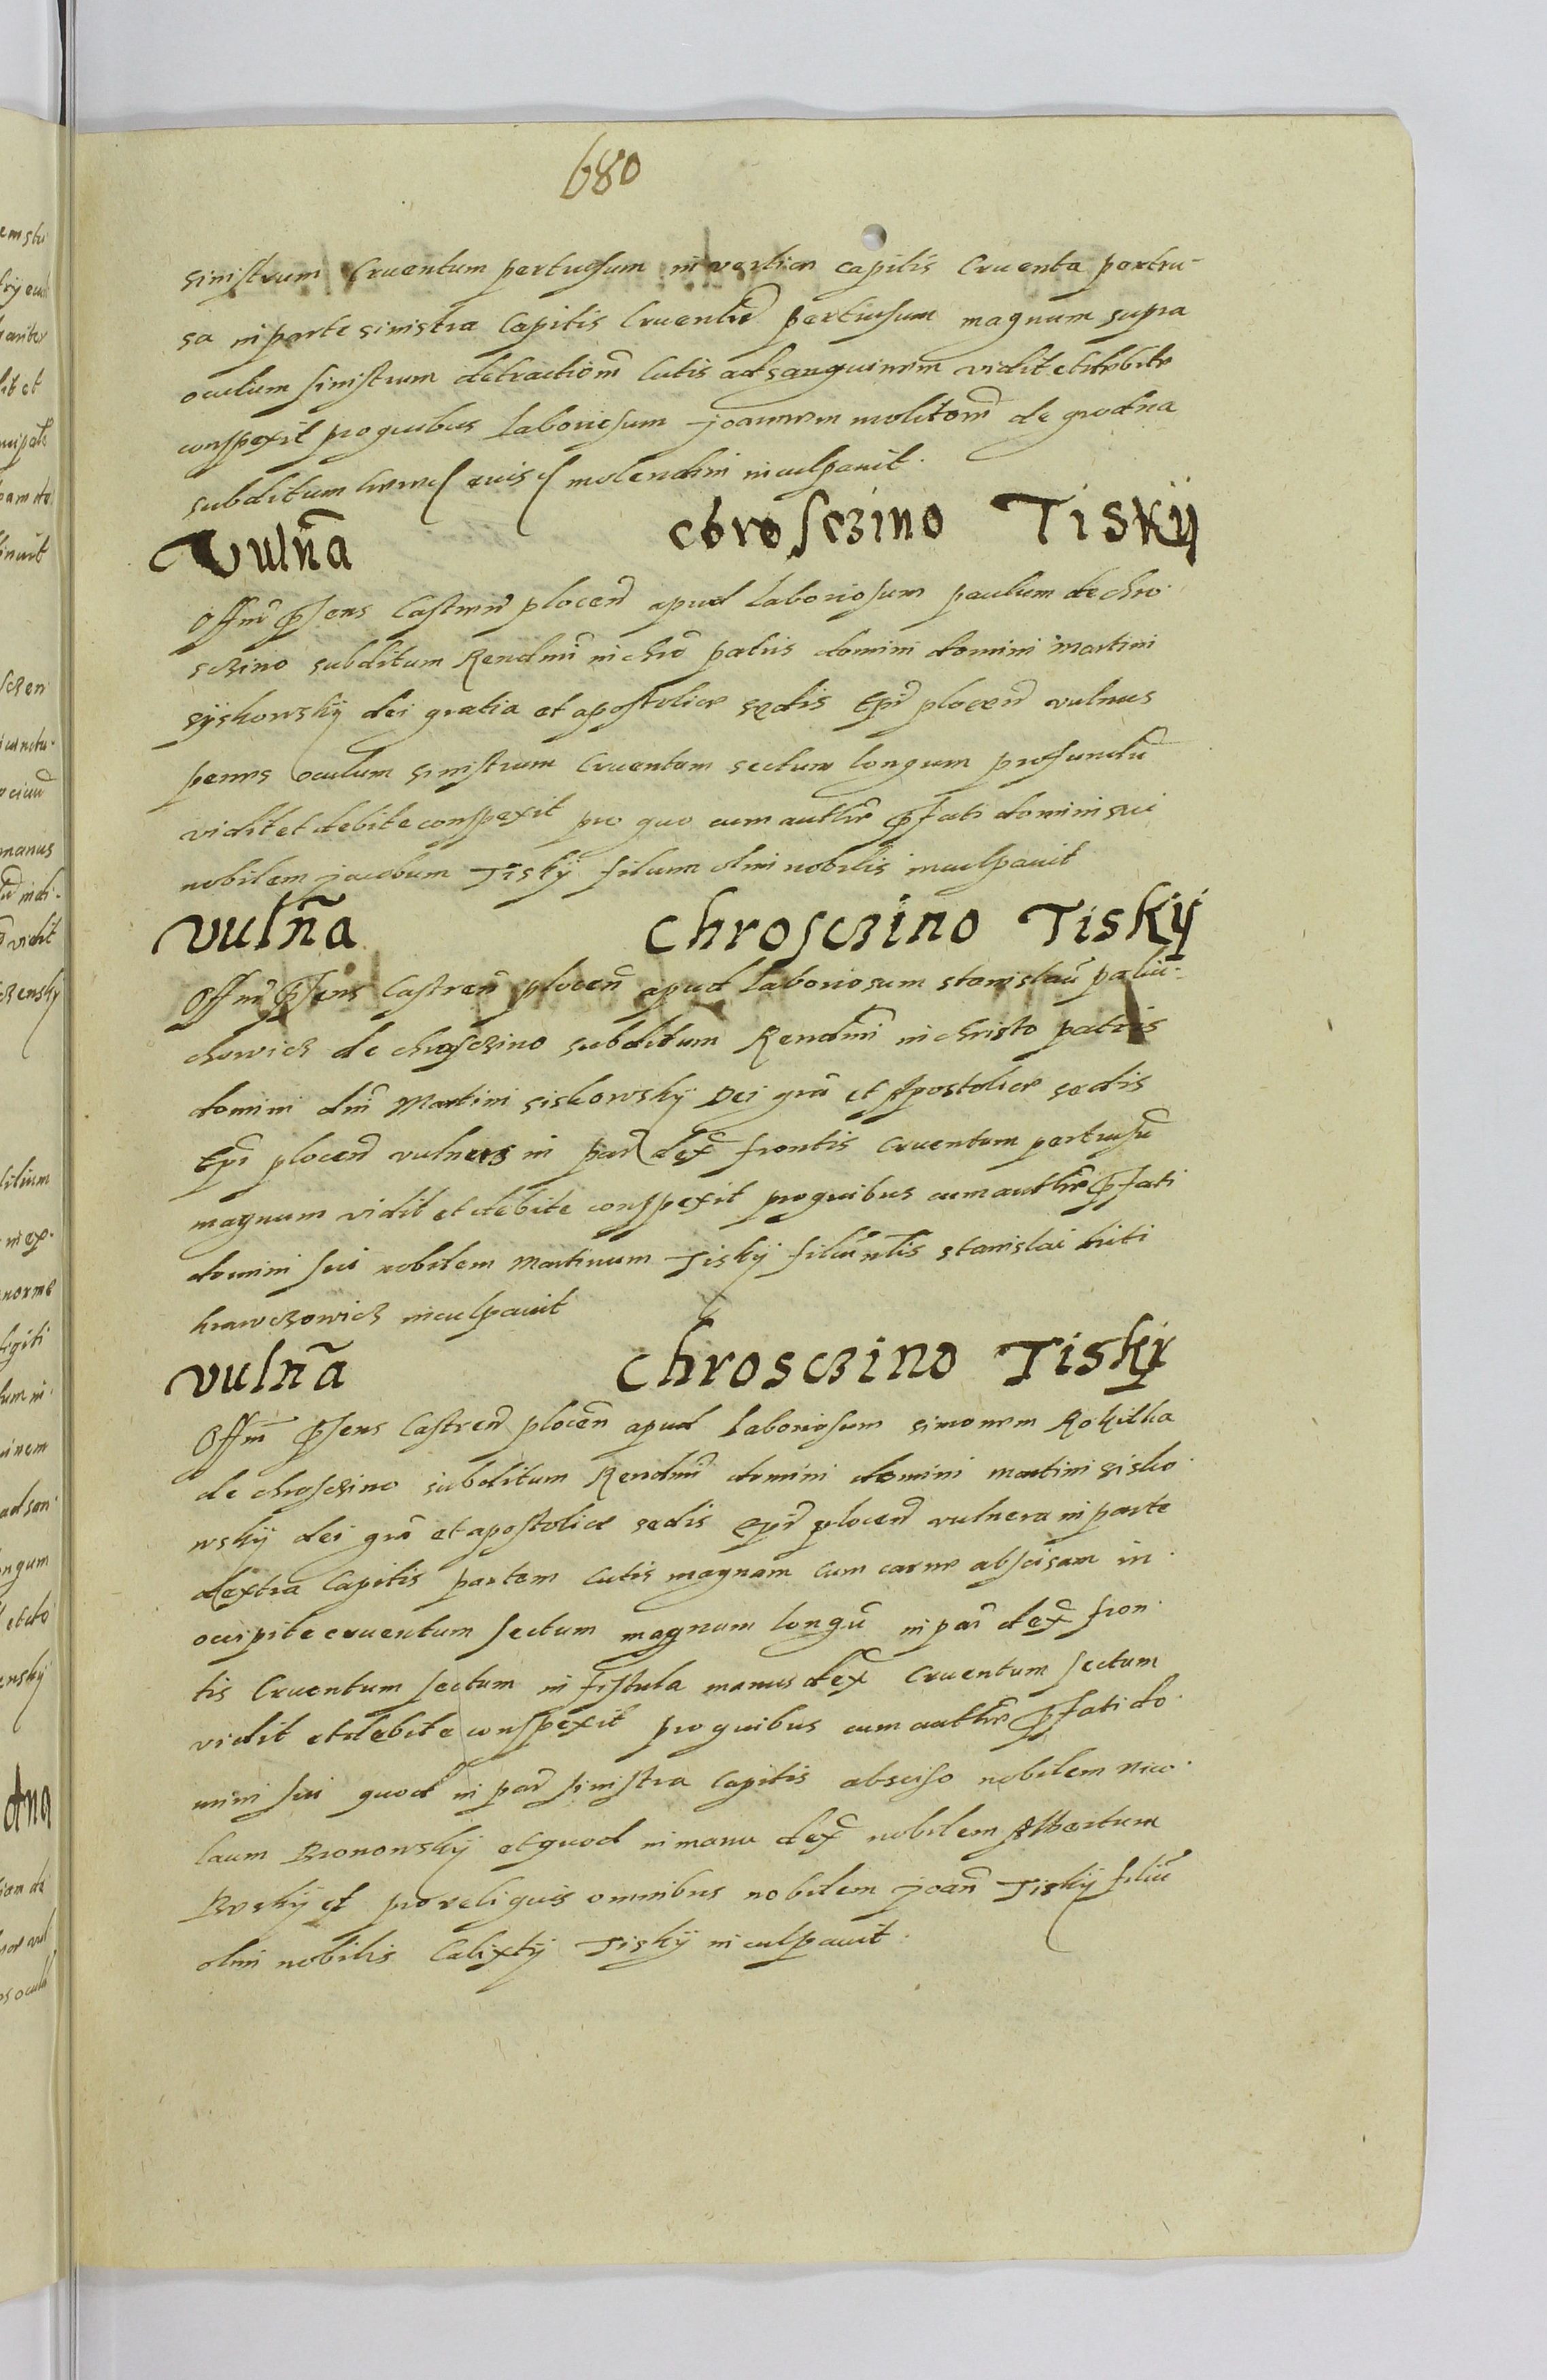 680
sinistrum Cruentum pertusum in vertice Capitis Cruenta pertu-
sa in parte sinistra Capitis Cruentū pertusum magnum supra
oculum sinistrum detractionē Cutis ad sanguinem vidit et debite
conspexit pro quibus Laboriosum Joannem molitorē de grodna
subditum molendini inculpavit.
Vulnā Chrosczino Tiskÿ
Offm̄ p̄sens Castren̄ plocen̄ apud Laboriosum paulum de chro
sczino subditum Rendmi in chrō patris domini domini Martini
sÿskowskÿ dei gratia et apostolice sedis Epī plocen̄ vulnus
penes oculum sinistrum Cruentum sectum longum profundū
vidit et debite conspexit pro quo cum auth̄re p̄fati domini sui
nobilem jacobum Tiskÿ filium olim nobilis inculpavit
Vulnā Chrosczino Tiskÿ
Offm̄ p̄sens Castren̄ plocen̄ apud Laboriosum stanislaū paliu-
chowicz de chrosczino subditum Rendmi in christo patris
domini dnī Martini siskowskÿ Dei grā et Apostolice sedis
Epī plocen̄ vulnera in par dex̄ frontis Cruentum pertusū
magnum vidit et debite conspexit pro quibus cum auth̄re p̄fati
domini sui nobilem Martinum Tiskÿ filiū nlīs stanislai dicti
krawczowicz inculpavit
Vulnā Chrosczino Tiskÿ
Offm̄ p̄sens Castren̄ plocen̄ apud Laboriosum simonem Rokitka
de chrosczino subditum Rendmi domini domini martini sisko
wskÿ dei grā et apostolice sedis Epī plocen̄ vulnera in parte
dextra Capitis partem Cutis magnam cum carne abscisam in
occipite cruentum sectum magnum longū in par dex̄ fron
tis Cruentum sectum in fistula manus dex̄ Cruentum sectum
vidit et debite conspexit pro quibus cum auth̄re p̄fati do
mini sui quod in par sinistra Capitis absciso nobilem Nico
laum Bronowskÿ et quod in manu dex̄ nobilem Albertum
et pro reliquis omnibus nobilem joān Tiskÿ filiū
olim nobilis Calixtÿ Tiskÿ inculpavit.